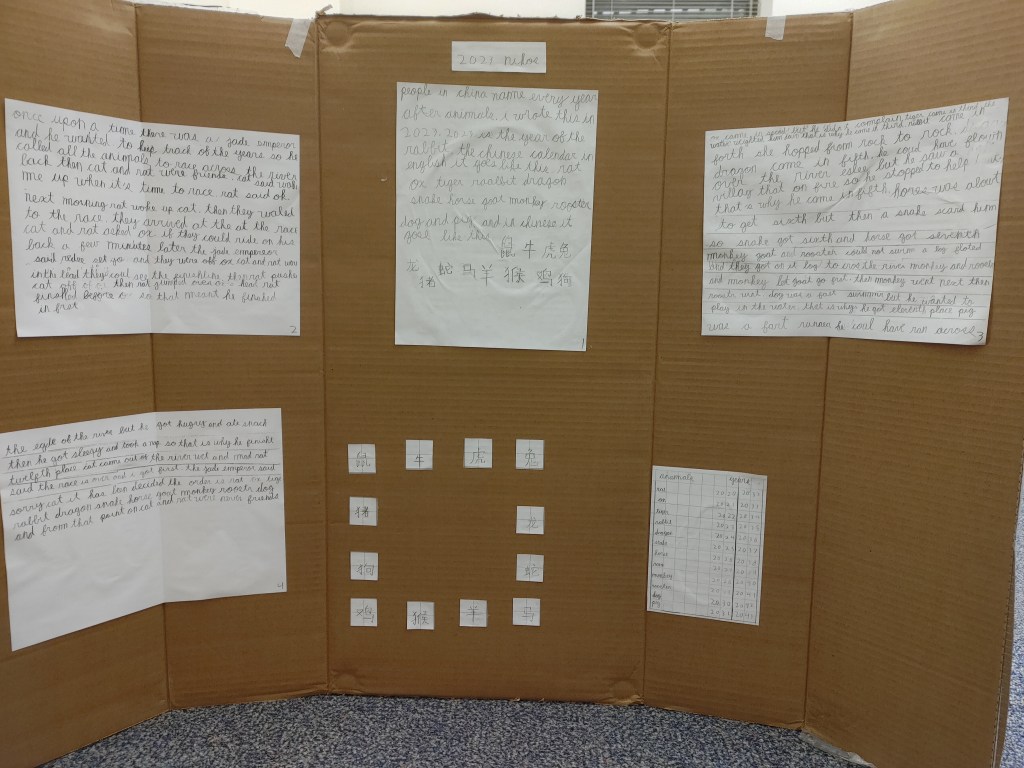 2023
people in china name every year
after animals. i wrote this in
2023. 2023 is the year of the
rabbit. the chinese calendar in
english it goes like this rat
ox tiger raabbit dragon
snake horse goat monkey rooster
dog and pig and in chinese it
goes like this
鼠 牛 虎 兔
龙 蛇 马 羊 猴 鸡 狗
猪
1
once upon a time there was a jade emperor
and he wanted to keep track of the years so he
called all the animals to race across the river
back then cat and rat were friends cat said wake
me up when it's time to race rat said ok
next morning rat woke up cat. then they walked
to the race. they arrived at the at the race
cat and rat asked ox if they could ride on his
back a few minutes later the jade emperor
said redee set go and they were off ox cat and rat were
in the lead they coul see the
cat off of ox then rat jumped over head rat
finished before ox so that meant he finished
in first
2
came in
forth she hopped from rock to rock
dragon came in fifth he coul have flown
over the river esley but he saw a
villag that on fire so he stopped to help
that a why he came in fifth horse was about
to get sixth but then a snake scard him
so snake got sixth and horse got seventh
monkey goat and rooster could not swim a log floted
and they got on it log to cros the river monkey and rooster
and monkey let goat go first. then monkey went next then
rooster went dog was a fast swimmer but he wanted to
play in the water that is why he got eleventh place pig
was a fast runner he coul have ran across
3
the egde of the river but he got hugry and ate snack
then he got sleepy and took a nap so that is why he finisht
twelfth place cat came out of the river wet and mad rat
said the race is over and i got first the jade emperor said
sorry cat it has ben decided the order is rat ox, tiger
rabbit dragon snake horse goat monkey rooster dog
and from that point on cat and rat were never friends
4
鼠 牛 虎 兔
猪 龙
狗 蛇
鸡 猴 羊 马
animals years
rat
ox
tiger
rabbit
dragon
snake
horse